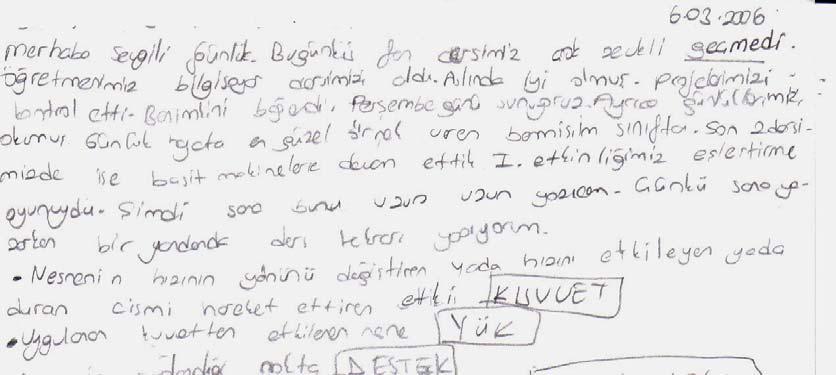 6.03.2006
merhaba sevgili Günlük. Bugünkü fen dersimiz çok zevkli geçmedi.
Öğretmenimiz bilgisayar dersimizi aldı. Aslında iyi olmuş. projelerimizi
kontrol etti. Benimkini beğendi. Perşembe günü sunuyoruz. Ayrıca günlüklerimizi
okumuş Günlük en güzel örnek veren benmişim sınıfta. Son 2 dersi-
mizde ise basit makinelere devam ettik I. etkinliğimiz eşleştirme
oyunuydu. Şimdi sana bunu uzun uzun yazıcam. Çünkü sana ya-
zarken bir yandanda ders tekrarı yapıyorum.
• Nesnenin hızının yönünü değiştiren yada hızını etkileyen yada
duran cismi hareket ettiren etki KUVVET
• Uygulanan kuvvetten etkilenen nene YÜK
nokta DESTEK